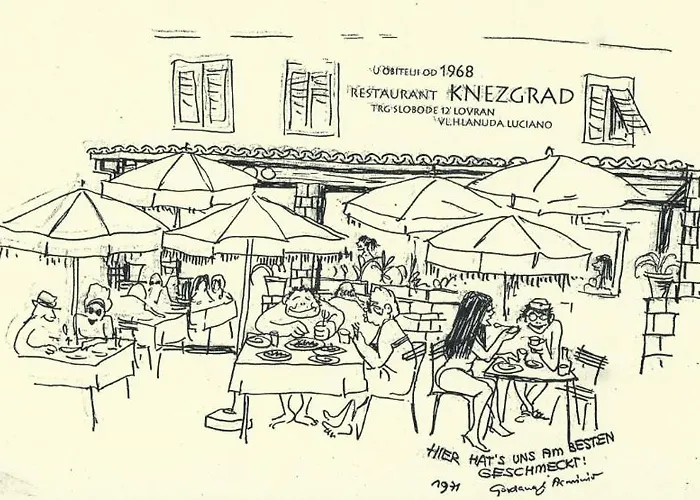 U OBITELJI OD 1968
RESTAURANT KNEZGRAD
TRG SLOBODE 12 LOVRAN
VL. HLANUDA LUCIANO
HIER HAT'S UNS AM BESTEN
GESCHMECKT!
1971